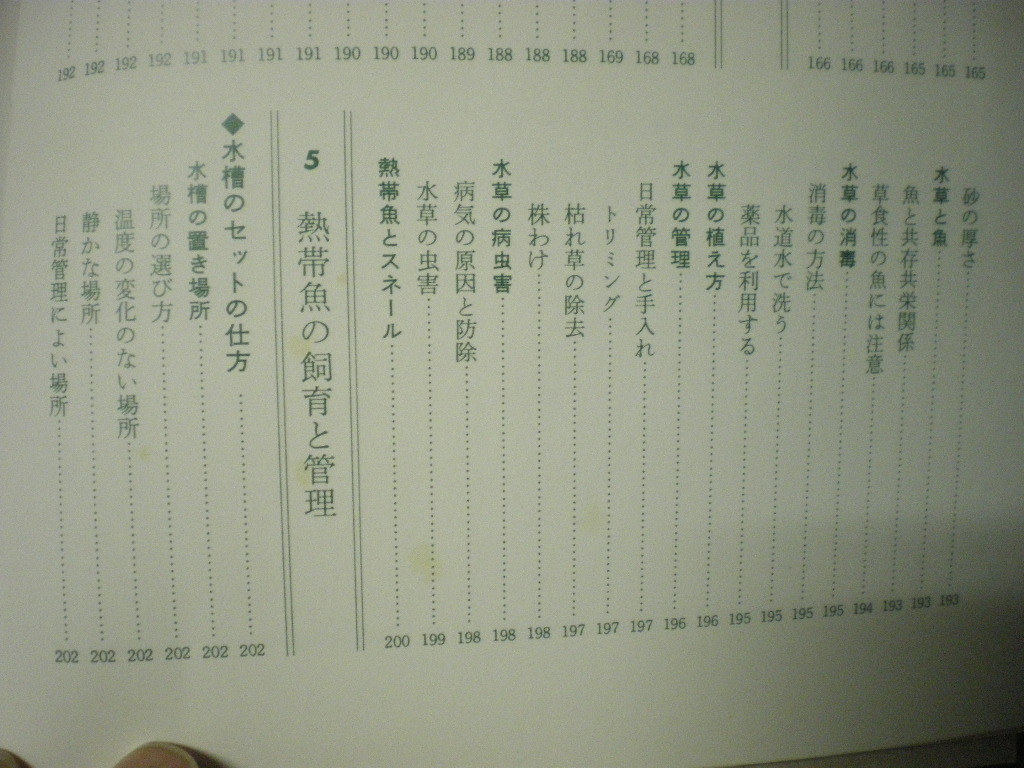 165
165
165
166
166
166
168
168
169
188
188
188
189
190
190
190
191
191
191
191
192
192
192
192
砂の厚さ……193
水草と魚……193
魚と共存共栄関係……193
草食性の魚には注意……194
水草の消毒……195
消毒の方法……195
水道水で洗う……195
薬品を利用する……195
水草の植え方……196
水草の管理……196
日常管理と手入れ……197
トリミング……197
枯れ草の除去……197
株わけ……198
水草の病虫害……198
病気の原因と防除……198
水草の虫害……199
熱帯魚とスネール……200
5 熱帯魚の飼育と管理
◆水槽のセットの仕方……202
水槽の置き場所……202
場所の選び方……202
温度の変化のない場所……202
静かな場所……202
日常管理によい場所……202